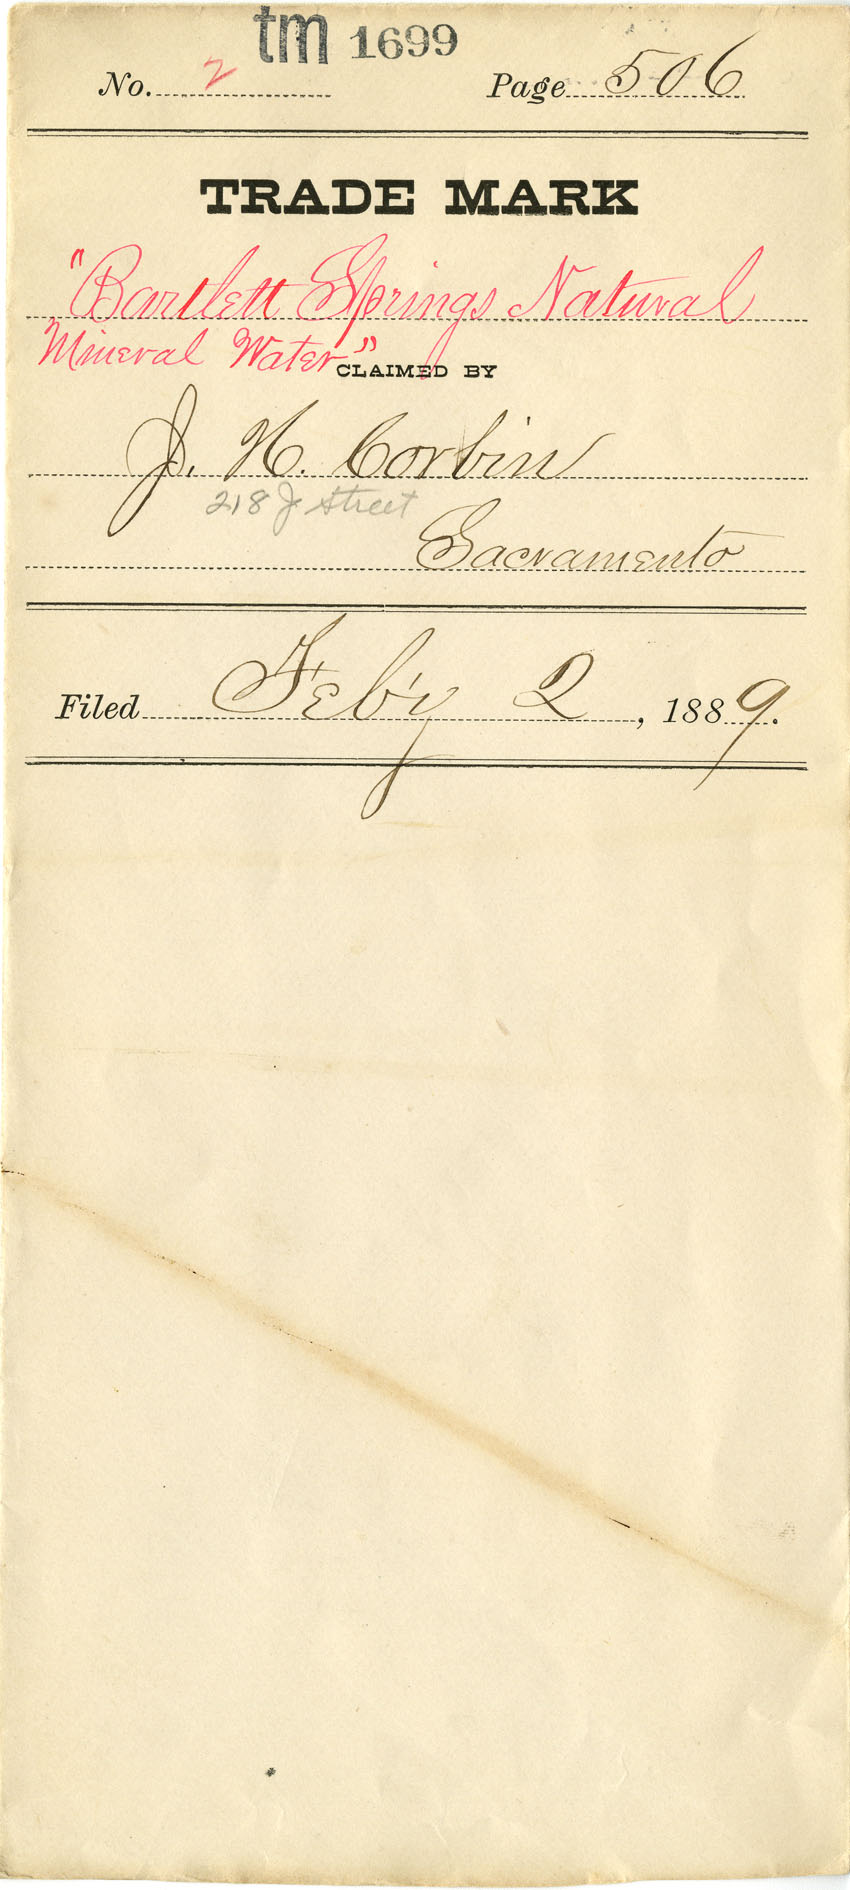 tm 1699
No. 2 Page 506
TRADE MARK
"Bartlett Springs Natural
Mineral Water"
CLAIMED BY
J. H. Corbin
218 J Street
Sacramento
Filed Feb'y 2, 1889.